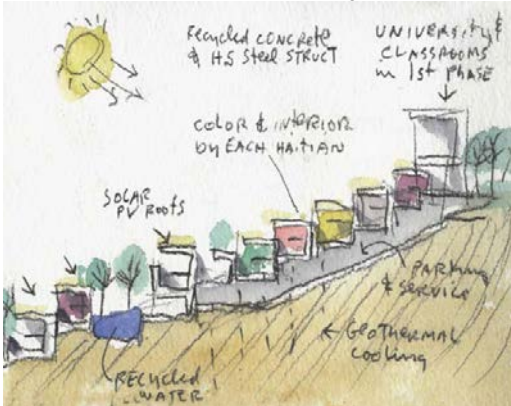 Recycled CONCRETE
& HS Steel STRUCT
UNIVERSITY &
CLASSROOMS
in 1st PHASE
COLOR & INTERIOR
by EACH HAITIAN
SOLAR
PV ROOFS
PARKING
& SERVICE
← GEOTHERMAL
COOLING
RECYCLED
WATER